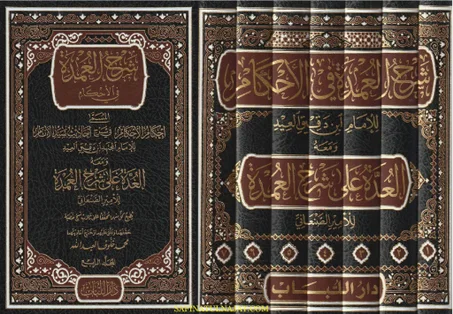 شرح العمدة
في الأحكام
المسمى
إحكام الأحكام في شرح أحاديث سيد الأنام
للإمام المجتهد ابن دقيق العيد
ومعه
العدة على شرح العمدة
للأمير الصنعاني
المجلد الرابع
دار اللباب
شرح العمدة في الأحكام
للإمام ابن دقيق العيد
ومعه
العدة على شرح العمدة
للأمير الصنعاني
دار اللباب